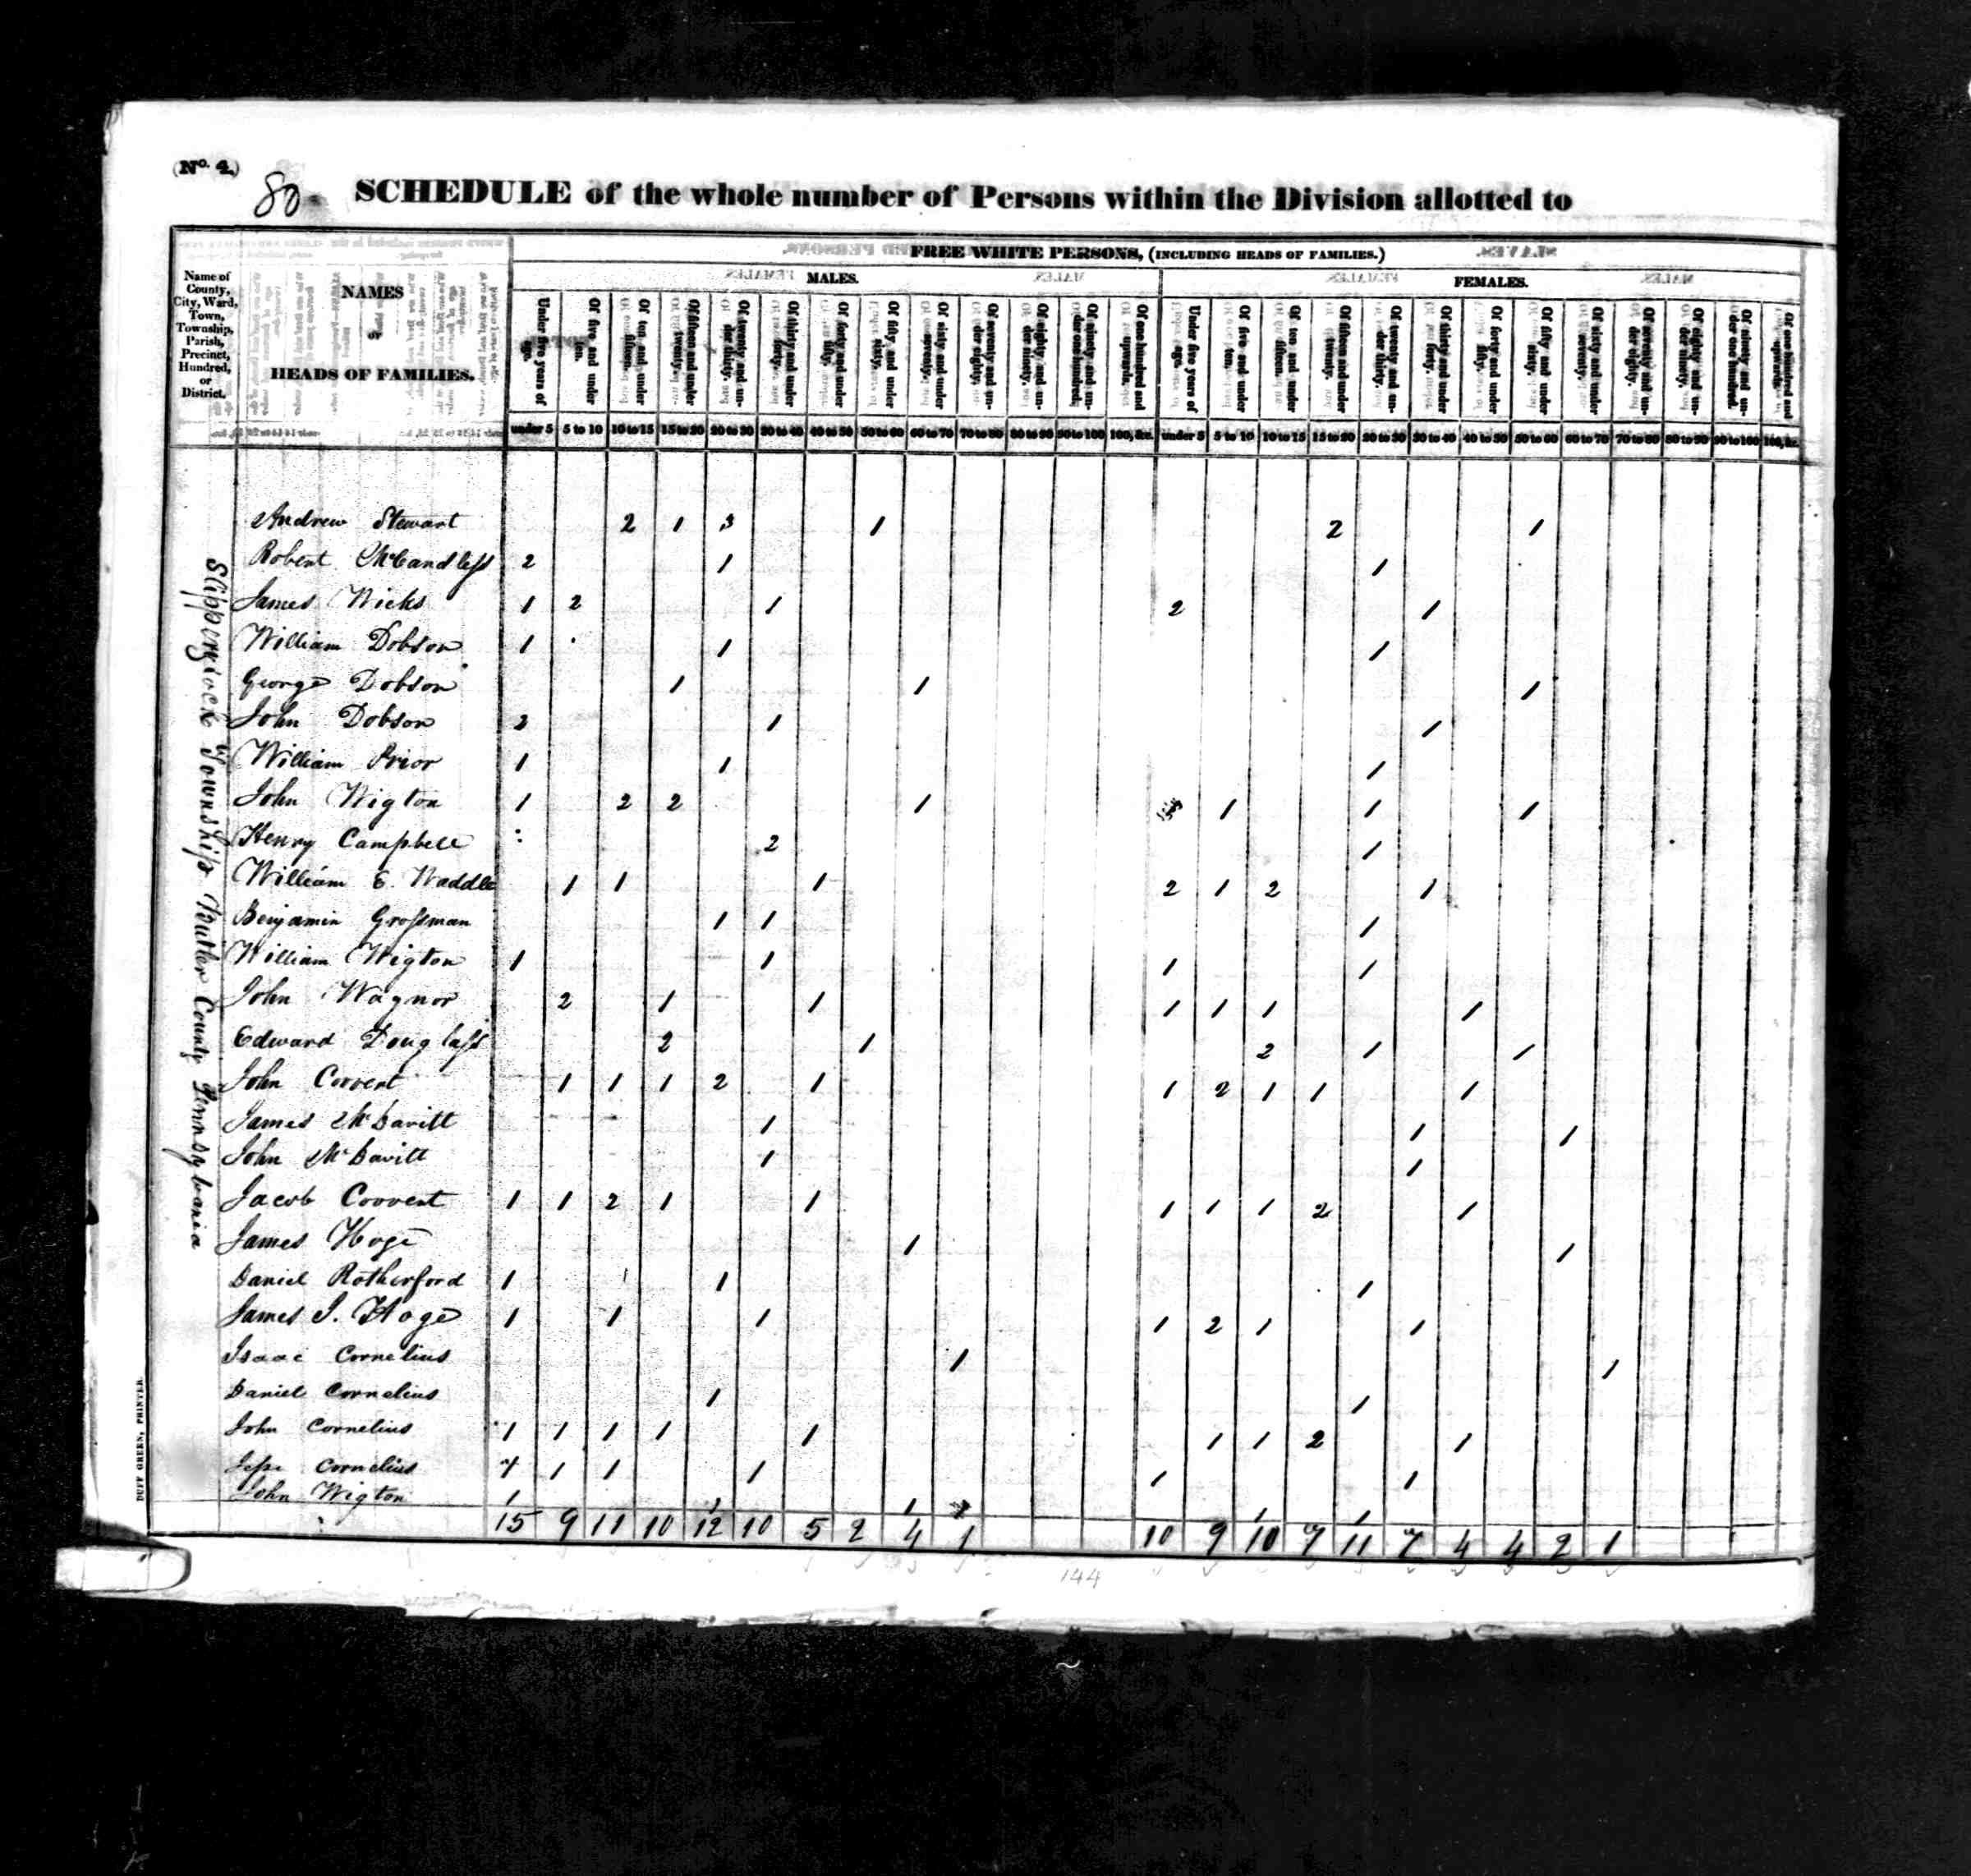 (No. 4.)
80
SCHEDULE of the whole number of Persons within the Division allotted to
Name of County, City, Ward, Town, Township, Parish, Precinct, Hundred, or District.
NAMES
OF
HEADS OF FAMILIES.
FREE WHITE PERSONS, (INCLUDING HEADS OF FAMILIES.)
MALES. FEMALES.
Under five years of age. Of five and under ten. Of ten and under fifteen. Of fifteen and under twenty. Of twenty and under thirty. Of thirty and under forty. Of forty and under fifty. Of fifty and under sixty. Of sixty and under seventy. Of seventy and under eighty. Of eighty and under ninety. Of ninety and under one hundred. Of one hundred and upwards. Under five years of age. Of five and under ten. Of ten and under fifteen. Of fifteen and under twenty. Of twenty and under thirty. Of thirty and under forty. Of forty and under fifty. Of fifty and under sixty. Of sixty and under seventy. Of seventy and under eighty. Of eighty and under ninety. Of ninety and under one hundred. Of one hundred and upwards.
under 5 5 to 10 10 to 15 15 to 20 20 to 30 30 to 40 40 to 50 50 to 60 60 to 70 70 to 80 80 to 90 90 to 100 100, &c. under 5 5 to 10 10 to 15 15 to 20 20 to 30 30 to 40 40 to 50 50 to 60 60 to 70 70 to 80 80 to 90 90 to 100 100, &c.
Slippenrock Township Butler County Pennsylvania
Andrew Stewart 2 1 3 1 2 1
Robert McCandless 2 1 1
James Wicks 1 2 1 2 1
William Dobson 1 1 1
George Dobson 1 1 1
John Dobson 2 1 1
William Prior 1 1 1
John Wigton 1 2 2 1 1 1 1
Henry Campbell 2 1
William E. Waddle 1 1 1 2 1 2 1
Benjamin Grossman 1 1 1
William Wigton 1 1 1 1
John Wagnor 2 1 1 1 1 1 1
Edward Douglass 2 1 2 1 1
John Covert 1 1 1 2 1 1 2 1 1 1
James McDavitt 1 1 1
John McDavitt 1 1
Jacob Coovert 1 1 2 1 1 1 1 1 2 1
James Hoge 1 1
Daniel Rotherford 1 1 1
James S. Hoge 1 1 1 1 2 1 1
Isaac Cornelius 1 1
Daniel Cornelius 1 1
John Cornelius 1 1 1 1 1 1 1 2 1
Jesse Cornelius 1 1 1 1 1
John Wigton 1 1 1 1 1
15 9 11 10 12 10 5 2 4 1 10 9 10 7 11 7 4 4 2 1
144
DUFF GREEN, PRINTER.